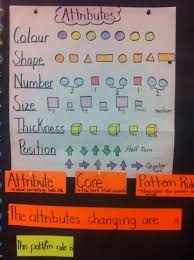 Attributes
Colour
Shape
Number
2 1 2 1 2
Size
Thickness
Position
Half Turn
Quarter
Turn
Attribute
Core
Pattern Rule
The attributes changing are
The pattern rule is